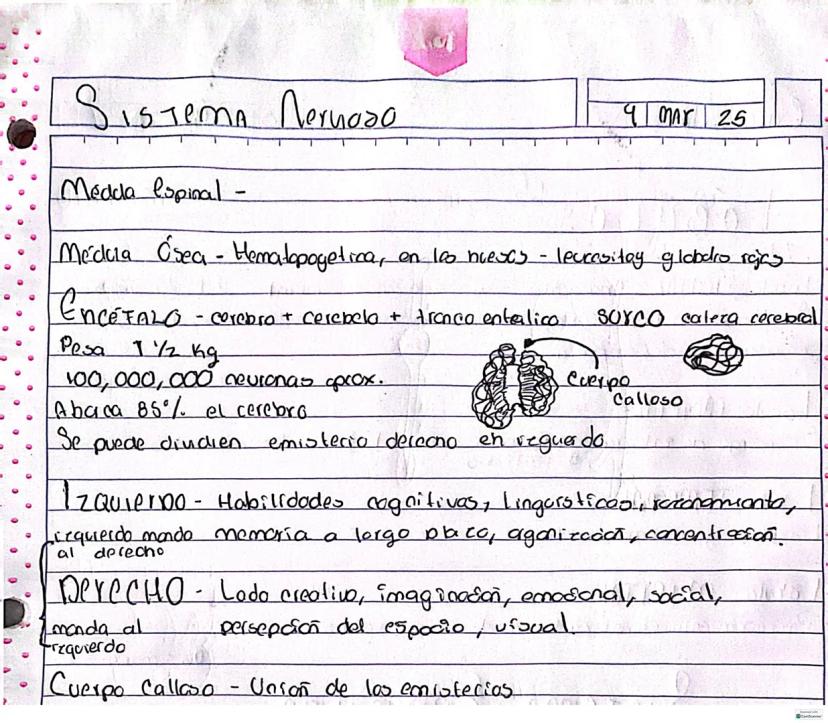 Sistema Nervoso
9 | MAR | 25
Médula Espinal -
Médula Ósea - Hematopoyetica, en los huesos - glóbulos rojos
ENCÉFALO - cerebro + cerebelo + tronco SURCO cerebral
Pesa 1 1/2 kg
100,000,000 neuronas aprox.
Abaca 85% el cerebro
Cuerpo
Calloso
Se puede en emisferio derecho en izquierdo
IZQUIERDO - Habilidades cognitivas, lingüísticas, razonamiento,
izquierdo mando memoria a largo plazo, organización, concentración.
al derecho
DERECHO - Lado creativo, imaginación, emosional, social,
manda al persepción del espacio, visual.
izquierdo
Cuerpo Calloso - Unión de los emisferios